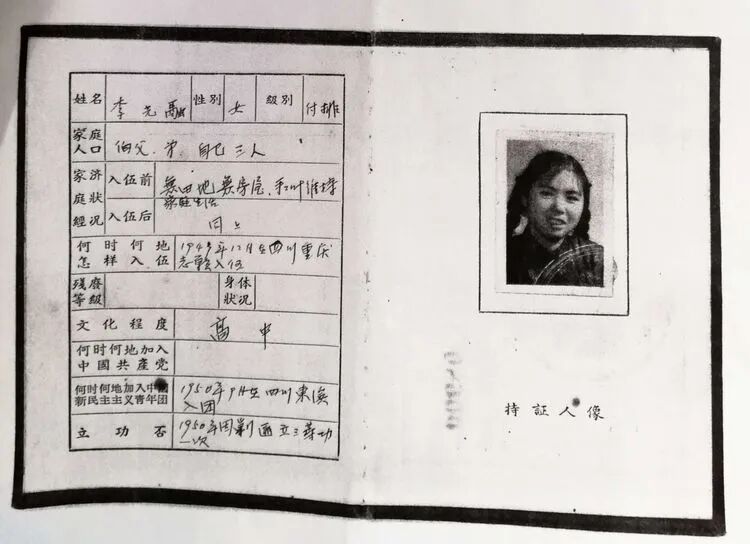 姓名 李先融 性別 女 級別 付排
家庭人口 伯父.弟.自己三人
家庭經濟狀況 入伍前 無田地無房屋.手工維持
家庭生活
入伍后 同上
何时何地怎样入伍 1949年12月在四川重庆
志願入伍
殘廢等級 身体狀况
文化程度 高中
何时何地加入
中國共產党
何时何地加入中國
新民主主义青年团 1950年9月在四川
入团
立功否 1950年因剿匪立三等功
一次
持証人像